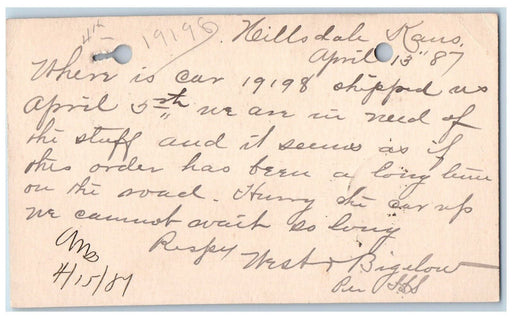 4th
19196
Hillsdale Kans.
April 13" 87
Where is car 19198 shipped us
April 5th we are in need of
the stuff and it seems as if
this order has been a long time
on the road. Hurry the car up
we cannot wait so long
Respy
West & Bigelow
Per
Ans
4/15/87